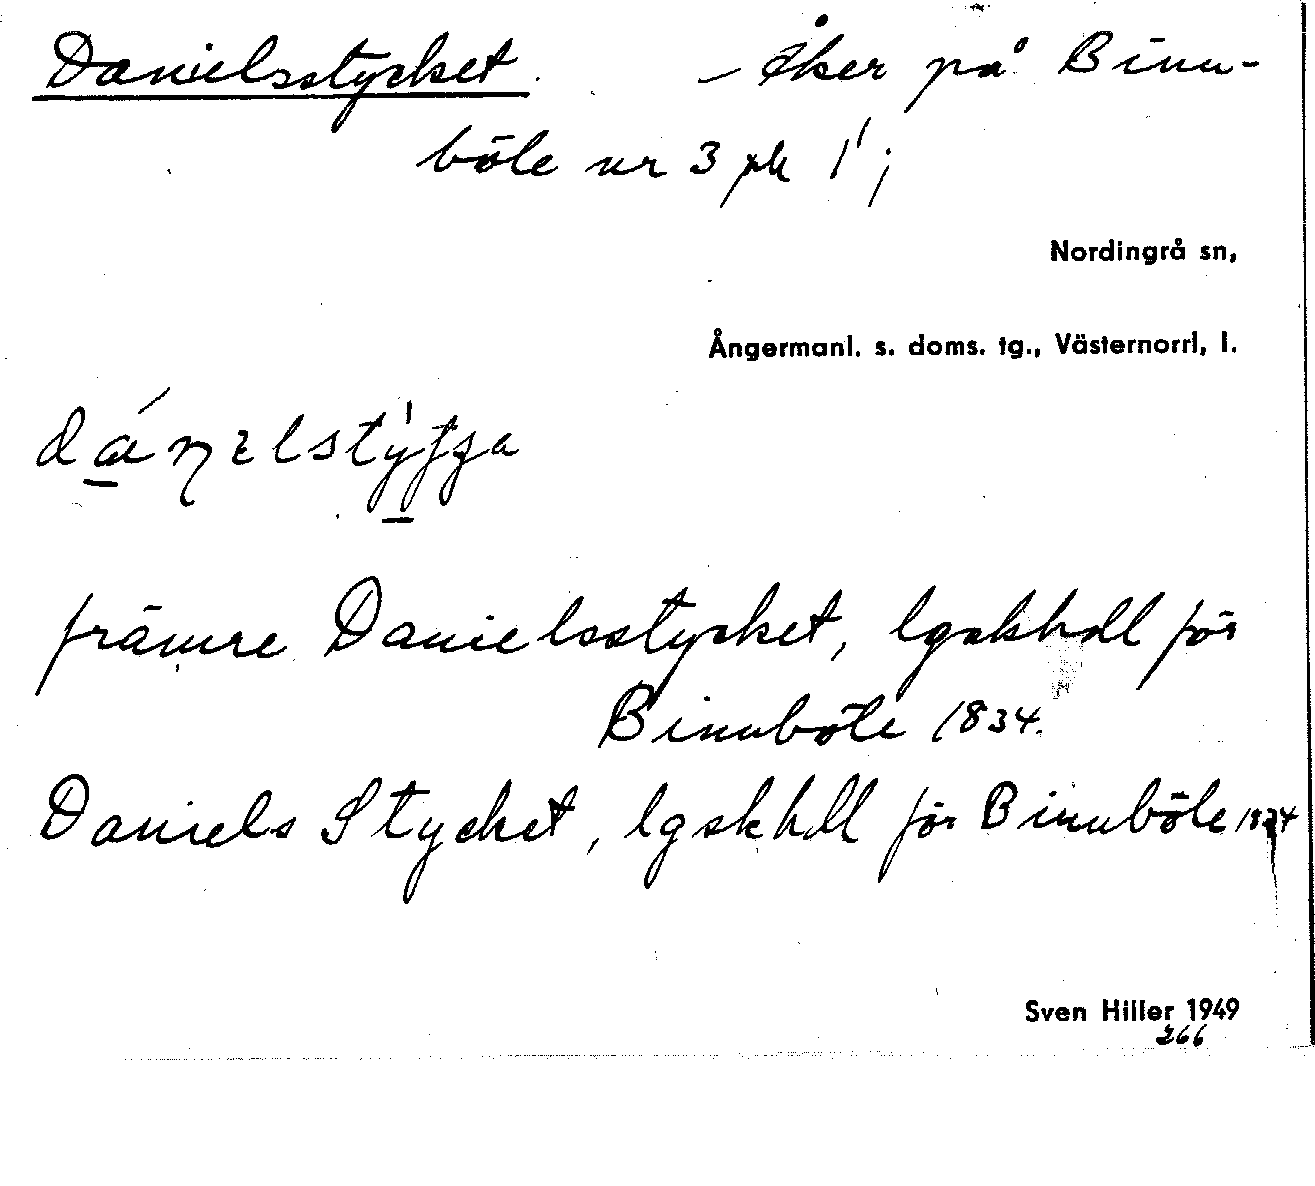 Danielsstycket. – Åker på Binn-
böle nr 3 pk 1';
Nordingrå sn,
Ångermanl. s. doms. tg., Västernorrl, l.
främre Danielsstycket, lgskhdl för
Binnböle 1834.
Daniels Stycket, lgskhdl för Binnböle
Sven Hiller 1949
266